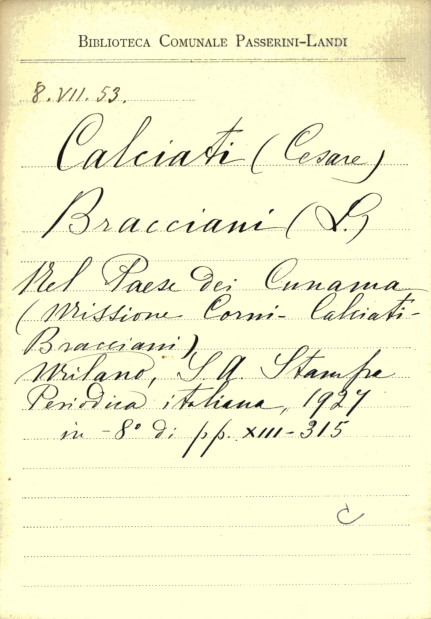 BIBLIOTECA COMUNALE PASSERINI-LANDI
8.VII.53.
Calciati (Cesare)
Bracciani (L.)
Nel Paese dei Cunama
(Missione Corni-Calciati-
Bracciani)
Milano, S A. Stampa
Periodica italiana, 1927
in-8° di pp. XIII-315
C